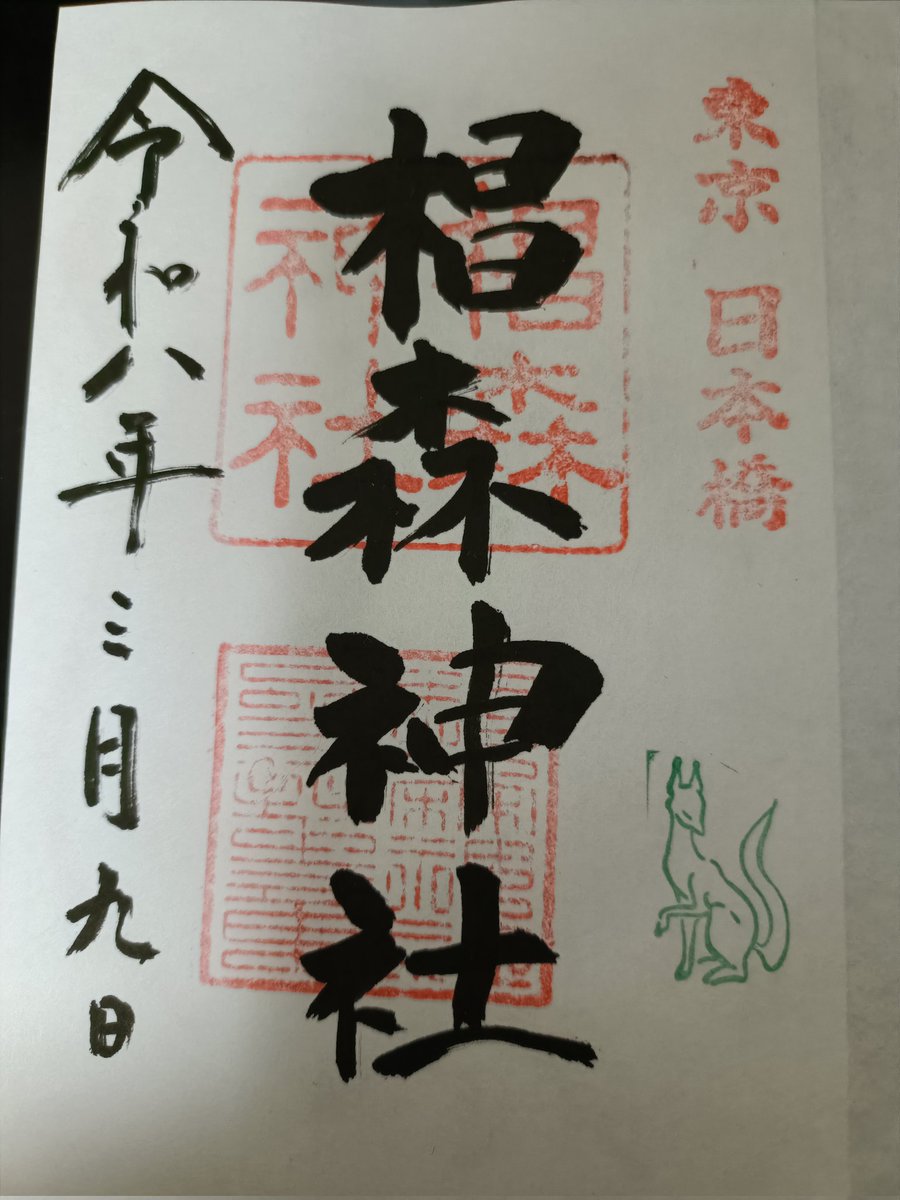 東京 日本橋
椙森神社
椙森
神社
令和八年三月九日